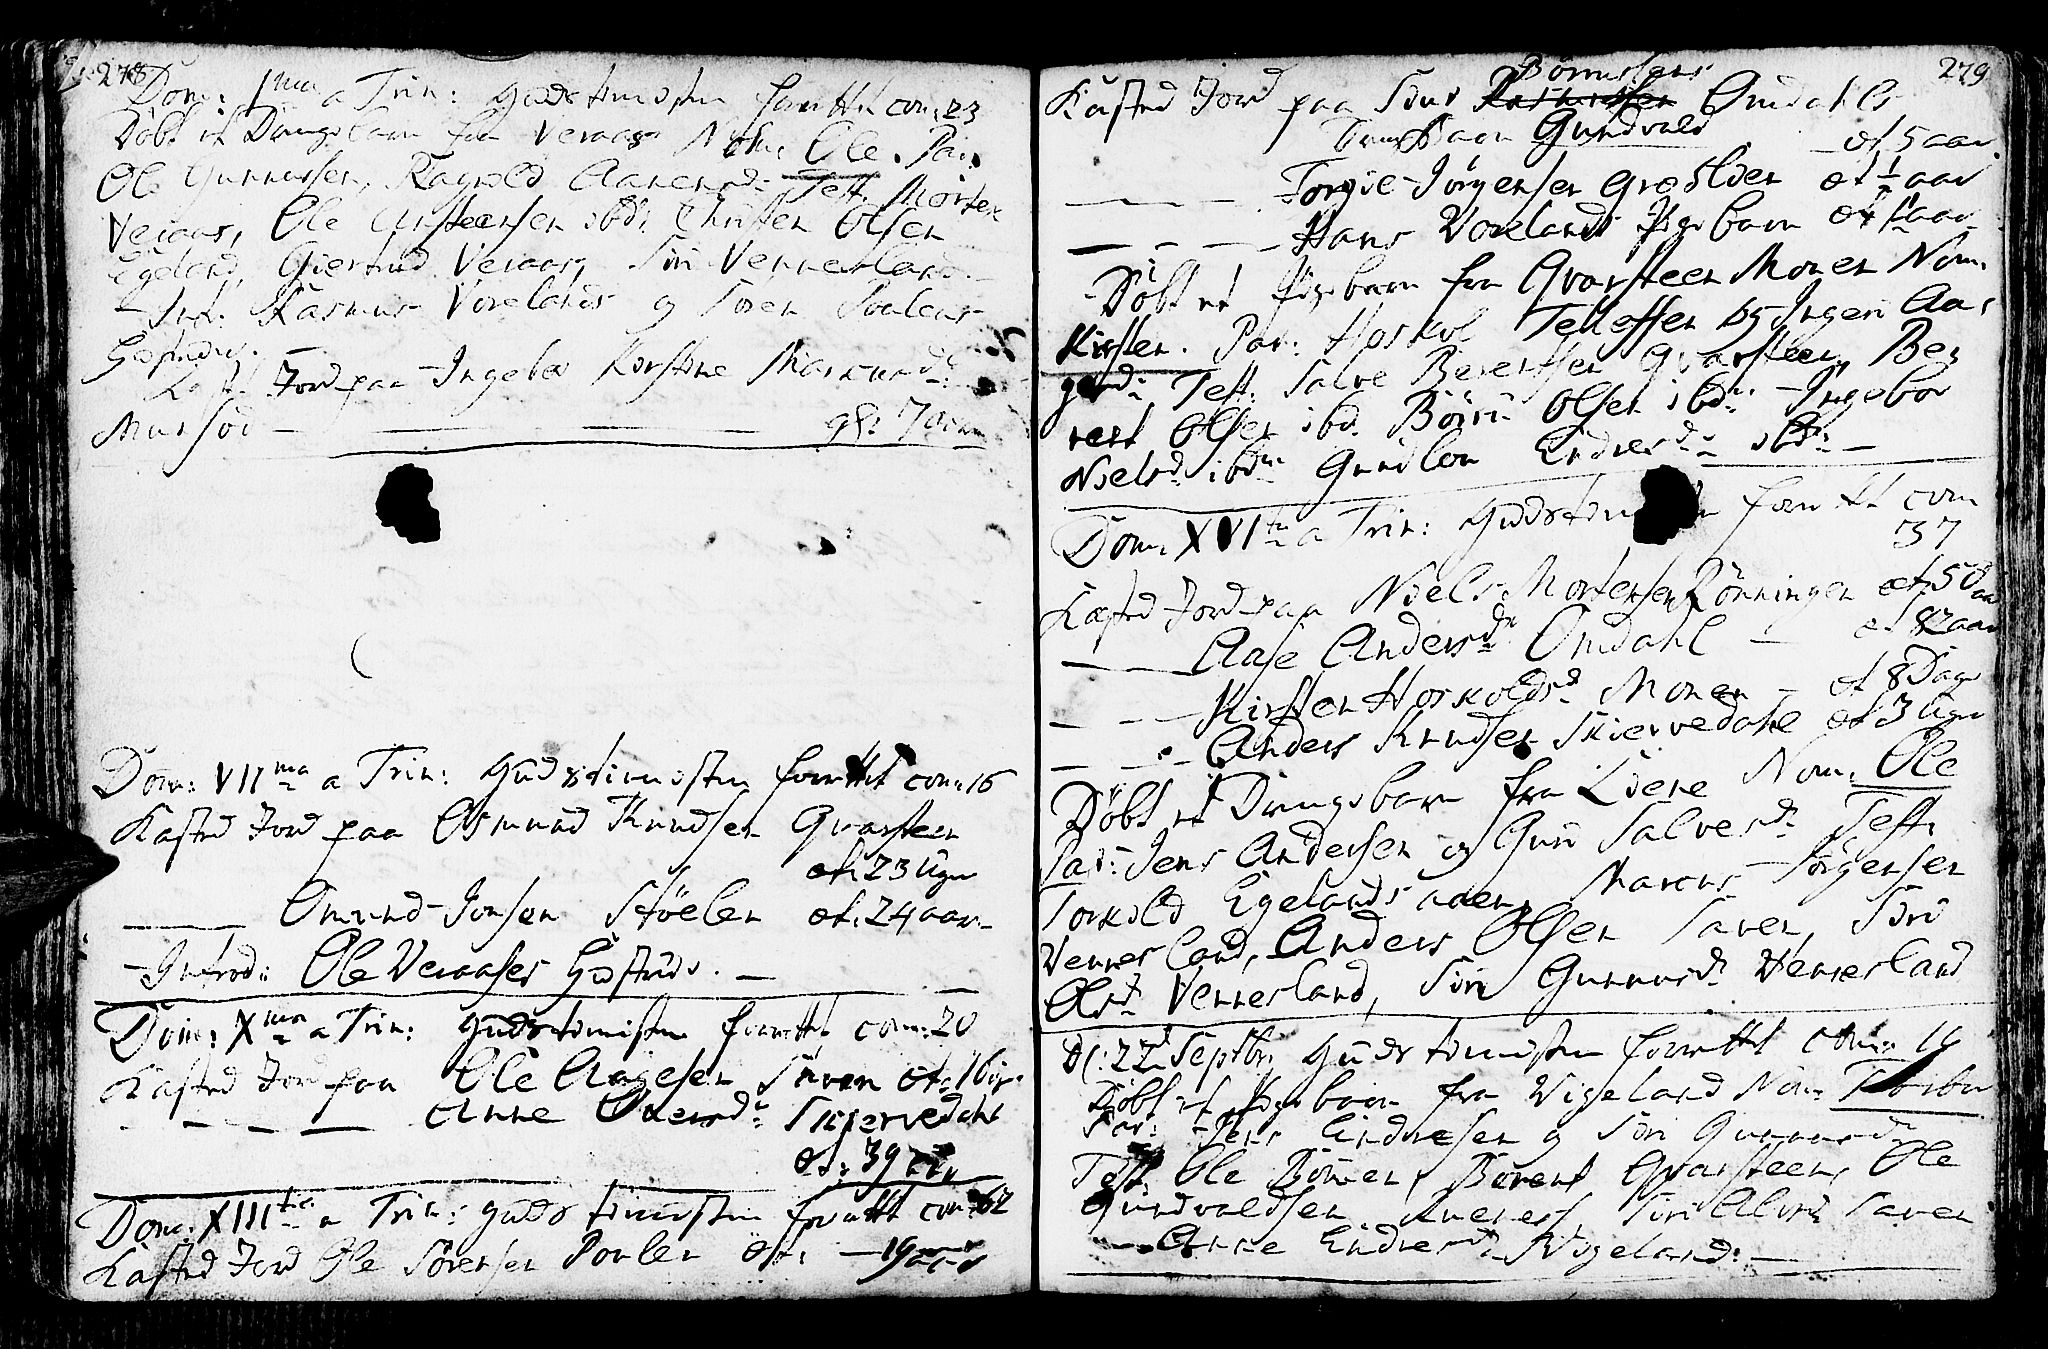 278
Dom: 1ma a Trin: Gudstienisten forrettet com: 23
Döbt et Drengebarn fra Veraas Nom: Ole. Par:
Ole Gunnersen, Ragnild Aanensd: Test. Morten
Veraas, Ole Christensen ibd: Christen Olsen
Egeland, Giertrud Veraas, Siri Vennersland.
Int: Rasmus Vorelands og Soren Poulens
Hustruer.
Kast: Jord paa Ingebor Kirstine Marcusd:
Mursöd — — gl: 7 aar
Dom: VIIma a Trin: Gudstienesten forrettet com: 16
Kasted Jord paa Osmund Knudsen Qvarsteen
et: 23 Uger
— Omund Jonsen Stöelen et: 24 aar.
Introd: Ole Veraases Hustrue. —
Dom: Xma a Trin: Gudstienisten forrettet com: 20
Kasted Jord paa Ole Aagesen Saven et: 16
— — — Anne Ovensd: Skiervedahl
et: 39
Dom: XIIItia a Trin: Gudstienisten forrettet com: 62
Kasted Jord Ole Sörensen Poulen et: — 19
279
Börrusens
Kasted Jord paa Siur Omdahls
Drengebarn Gundvald — et 5 aar.
— — — Torgie Jörgensen et 1 aar
— — — Hans Vorelands Pigebarn et 1 aar
Döbt et Pigebarn fra Qvarsteen Monen Nom.
Kirsten. Par: Hoskol Tellefsen og Ingeri Aa-
gesd: Test: Salve Berentsen Qvarsteen, Be-
rent Olsen ibd. Börru Olsen ibd: Ingebor
Nielsd: ibd: Gunlou Endresd: ibd: —
Dom: XVIta a Trin: forrettet com
37
Kasted Jord paa Niels Mortensen Rönningen et 50 aar
— — Aase Andersd: Omdahl — et 82 aar
— — — Kirsten Hoskoldsd: Monen — et 8 Dage
— — Anders Knudsen Skiervedahl et 3 Uger
Döbt et Drengebarn fra Liene Nom: Ole
Par: Jens Andersen og Guri Salvesd: Test:
Torkild Egelandsaaen, Marcus Jörgensen
Vennersland, Anders Olsen Saven, Siri
Olsd: Vennersland, Siri Gunnersd: Vennersland
D: 22d Septbr: Gudstienisten forrettet com: 14
Döbt et Pigebarn fra Vigeland Nom:
Par: Jens Endresen og Siri Gunnersd:
Test. Ole Böinen, Berent Qvarsteen, Ole
Gundvaldsen Siri Saven
Anne Endresd: Vigeland: —